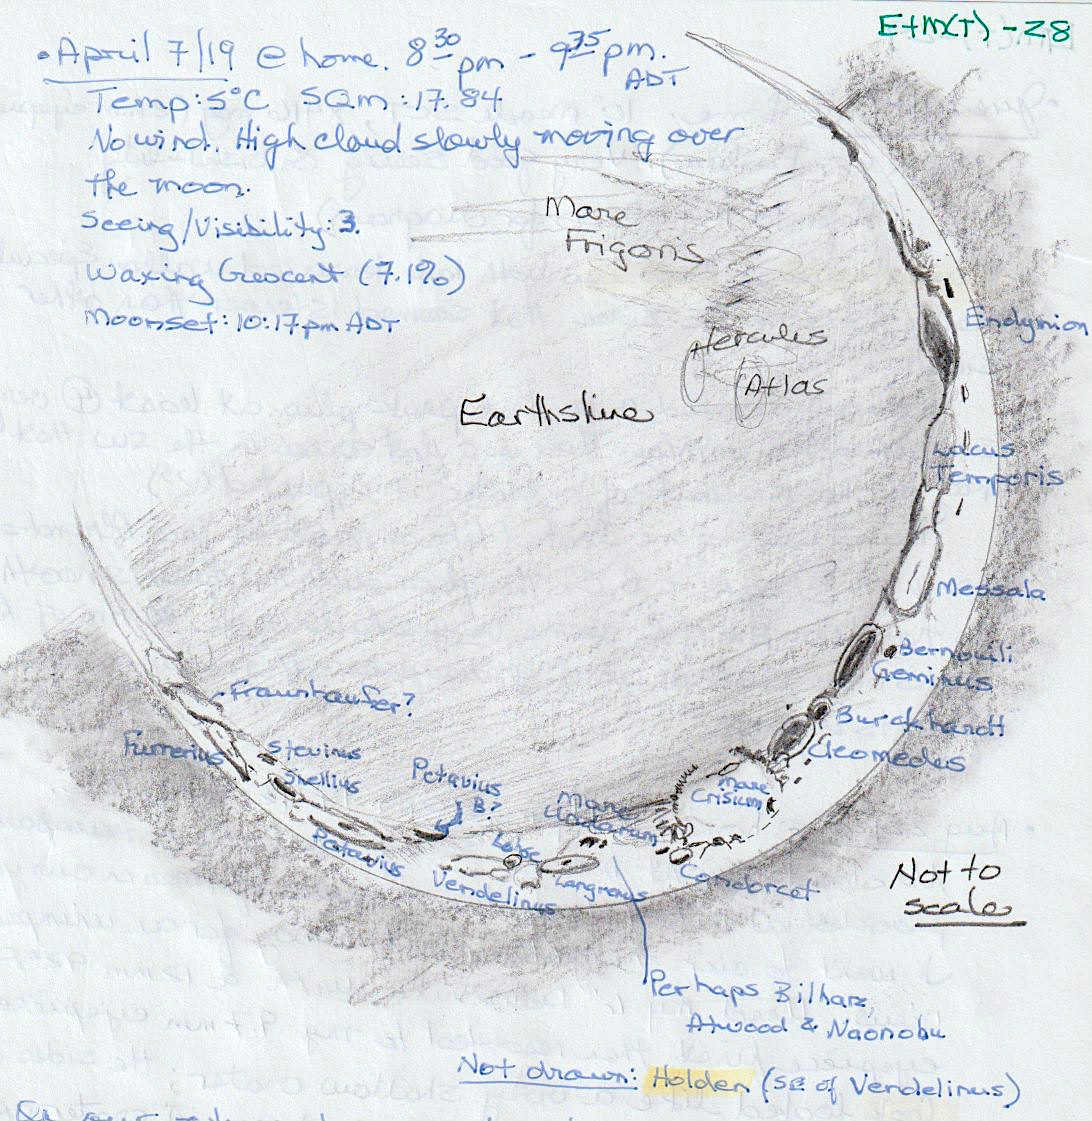 E+M(T) - 28
• April 7/19 @ home. 8³⁰ pm - 9³⁵ pm.
ADT
Temp: 5°C SQM: 17.84
No wind. High cloud slowly moving over
the moon.
Seeing/Visibility: 3.
Waxing Crescent (7.1%)
Moonset: 10:17pm ADT
Mare
Frigoris
Endymion
Hercules
Atlas
Earthshine
Lacus
Temporis
Messala
Bernouili
Geminus
Fraunhaufer?
Burckhardt
Furnerius
Stevinus
Cleomedes
Snellius
Petavius
B?
Mare
Crisium
Mare
Undarum
Petavius
Lohse
Vendelinus
Langrenus
Condorcet
Not to
scale
Perhaps Bilharz,
Atwood & Naonobu
Not drawn: Holden (SE of Vendelinus)